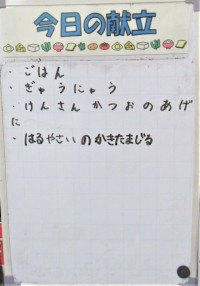 今日の献立
・ごはん
・ぎゅうにゅう
・けんさんかつおのあげ
に
・はるやさいのかきたまじる